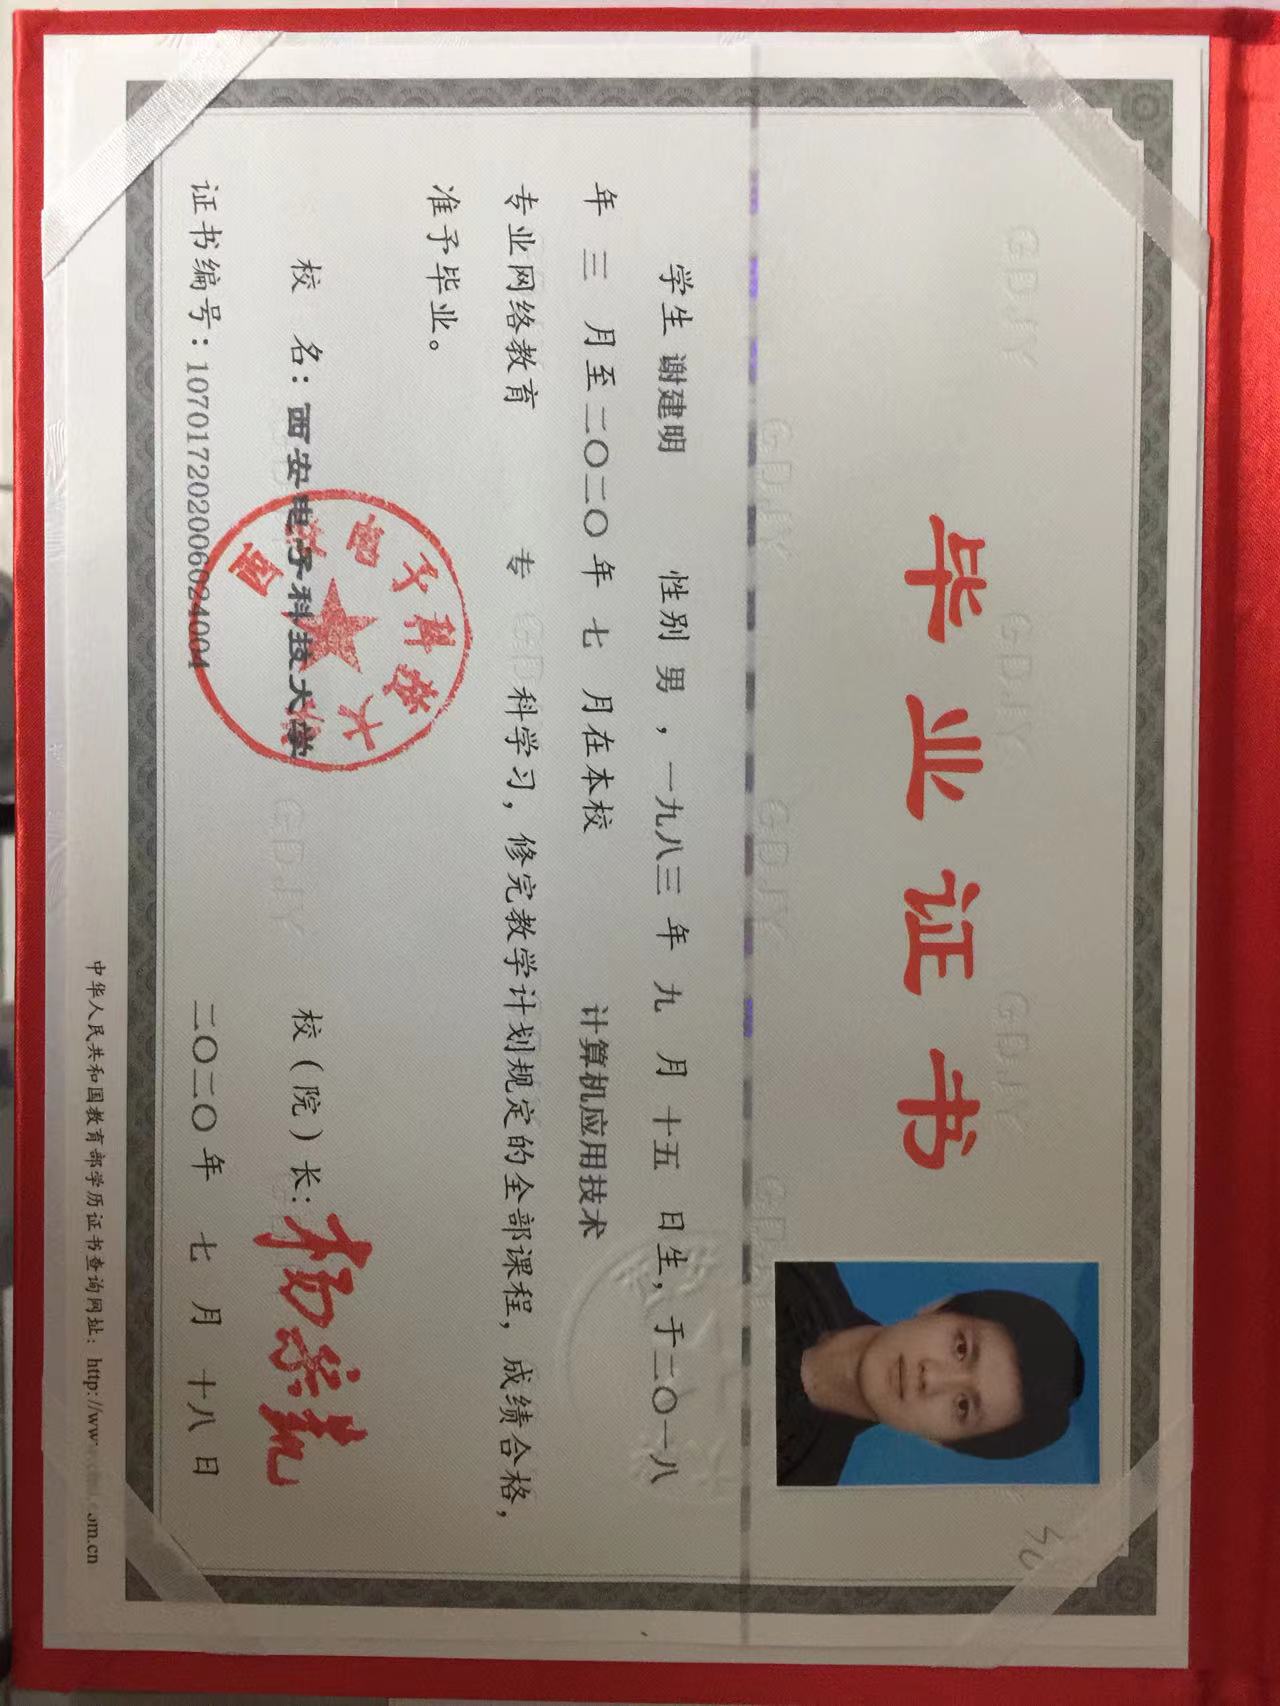 毕业证书
学生 谢建明 性别 男 ，一九八三 年 九 月 十五 日生，于二〇一八
年 三 月至二〇二〇 年 七 月在本校 计算机应用技术
专业网络教育 专 科学习，修完教学计划规定的全部课程，成绩合格，
准予毕业。
校 名：西安电子科技大学 校（院）长：
证书编号：107017202006024004 二〇二〇年 七 月 十八 日
中华人民共和国教育部学历证书查询网址：http://www.
西安电子科技大学
GDJY
GDJY
GDJY
GDJY
GDJY
GDJY
GDJY